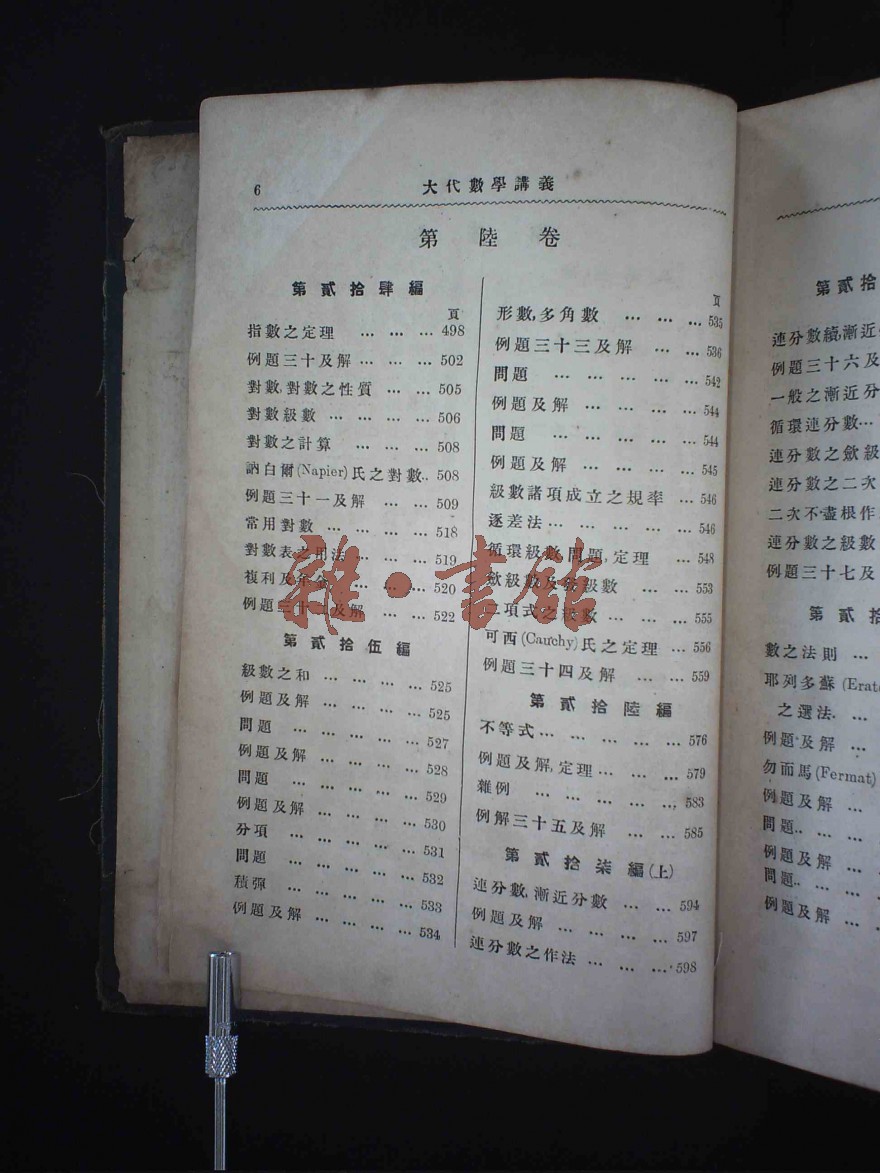 6
大代數學講義
第陸卷
第貳拾肆編
頁
指數之定理 … … … 498
例題三十及解 … … … 502
對數,對數之性質 … … 505
對數級數 … … … 506
對數之計算 … … … 508
訥白爾(Napier)氏之對數.. 508
例題三十一及解 … … 509
常用對數 … … … … 518
對數表之用法 … … … 519
複利及年金 … … … 520
例題三十二及解 … … 522
第貳拾伍編
級數之和 … … … … 525
例題及解 … … … … 525
問題 … … … … … 527
例題及解 … … … … 528
問題 … … … … … 529
例題及解 … … … … 530
分項 … … … … … 531
問題 … … … … … 532
積彈 … … … … … 533
例題及解 … … … … 534
頁
形數,多角數 … … … 535
例題三十三及解 … … 536
問題 … … … … … 542
例題及解 … … … … 544
問題 … … … … … 544
例題及解 … … … … 545
級數諸項成立之規率 … 546
逐差法 … … … … … 546
循環級數,問題,定理 … 548
斂級數及發級數 … … 553
二項式之級數 … … … 555
可西(Cauchy)氏之定理 … 556
例題三十四及解 … … 559
第貳拾陸編
不等式 … … … … … 576
例題及解,定理 … … … 579
雜例 … … … … … 583
例解三十五及解 … … 585
第貳拾柒編(上)
連分數,漸近分數 … … 594
例題及解 … … … … 597
連分數之作法 … … … 598
第貳拾
連分數續,漸近
例題三十六及
一般之漸近分
循環連分數…
連分數之斂級
連分數之二次
二次不盡根作
連分數之級數
例題三十七及
第貳拾
數之法則 …
耶列多蘇(Erat
之選法. …
例題及解 …
勿而馬(Fermat)
例題及解 …
問題.. …
例題及解 …
問題.. …
例題及解 …
雜·書館